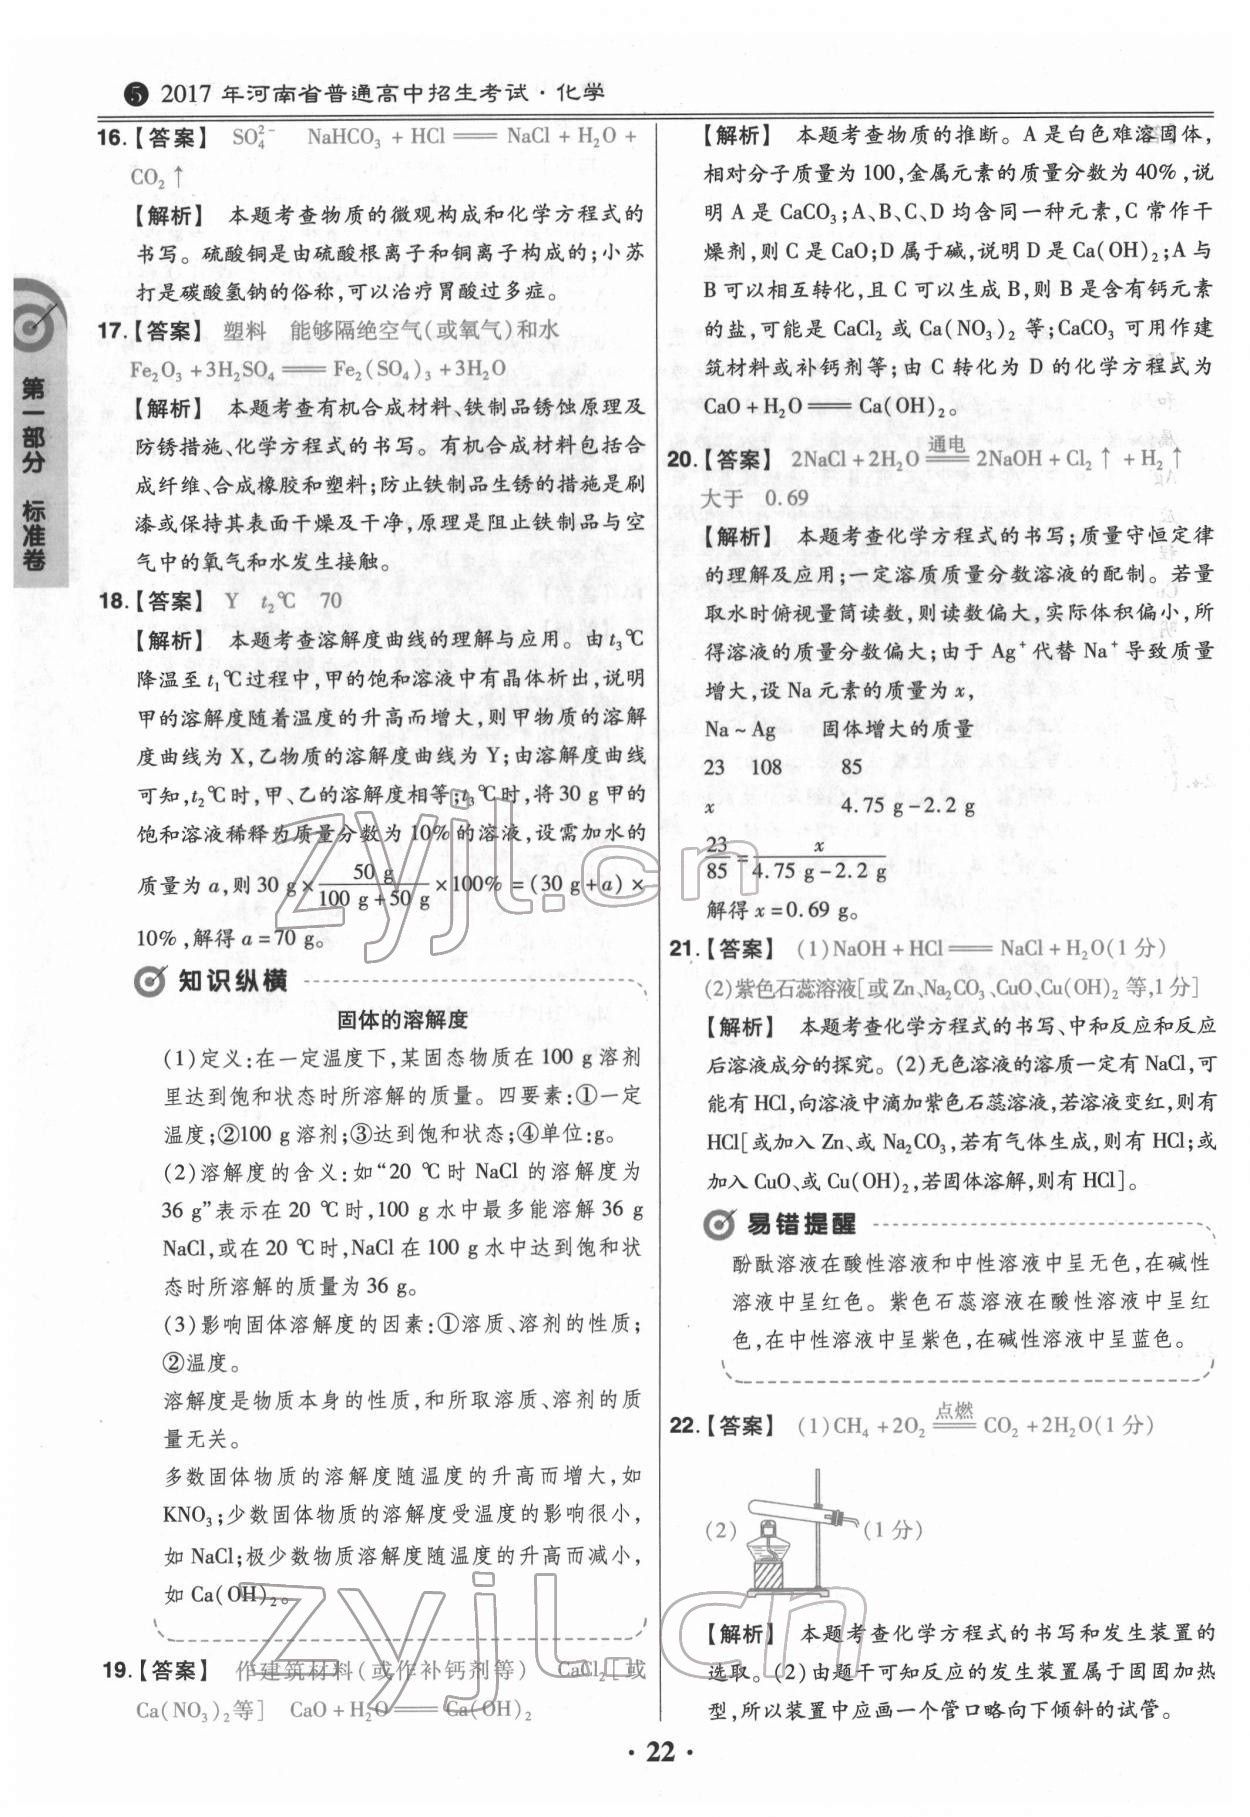 ❺ 2017 年河南省普通高中招生考试·化学
第一部分 标准卷
16.【答案】 SO₄²⁻ NaHCO₃ + HCl ═══ NaCl + H₂O +
CO₂↑
【解析】 本题考查物质的微观构成和化学方程式的
书写。硫酸铜是由硫酸根离子和铜离子构成的;小苏
打是碳酸氢钠的俗称,可以治疗胃酸过多症。
17.【答案】 塑料 能够隔绝空气(或氧气)和水
Fe₂O₃ +3H₂SO₄ ═══ Fe₂(SO₄)₃ +3H₂O
【解析】 本题考查有机合成材料、铁制品锈蚀原理及
防锈措施、化学方程式的书写。有机合成材料包括合
成纤维、合成橡胶和塑料;防止铁制品生锈的措施是刷
漆或保持其表面干燥及干净,原理是阻止铁制品与空
气中的氧气和水发生接触。
18.【答案】 Y t₂℃ 70
【解析】 本题考查溶解度曲线的理解与应用。由t₃℃
降温至t₁℃过程中,甲的饱和溶液中有晶体析出,说明
甲的溶解度随着温度的升高而增大,则甲物质的溶解
度曲线为X,乙物质的溶解度曲线为Y;由溶解度曲线
可知,t₂℃时,甲、乙的溶解度相等;t₃℃时,将30 g 甲的
饱和溶液稀释为质量分数为10%的溶液,设需加水的
质量为a,则30 g× 50 g/(100 g+50 g) ×100% =(30 g+a)×
10%,解得a=70 g。
知识纵横
固体的溶解度
(1)定义:在一定温度下,某固态物质在100 g溶剂
里达到饱和状态时所溶解的质量。四要素:①一定
温度;②100 g溶剂;③达到饱和状态;④单位:g。
(2)溶解度的含义:如“20 ℃时 NaCl 的溶解度为
36 g”表示在20 ℃时,100 g水中最多能溶解36 g
NaCl,或在20 ℃时,NaCl在100 g水中达到饱和状
态时所溶解的质量为36 g。
(3)影响固体溶解度的因素:①溶质、溶剂的性质;
②温度。
溶解度是物质本身的性质,和所取溶质、溶剂的质
量无关。
多数固体物质的溶解度随温度的升高而增大,如
KNO₃;少数固体物质的溶解度受温度的影响很小,
如NaCl;极少数物质溶解度随温度的升高而减小,
如Ca(OH)₂。
19.【答案】 作建筑材料(或作补钙剂等) CaCl₂[或
Ca(NO₃)₂等] CaO+H₂O═══Ca(OH)₂
【解析】 本题考查物质的推断。A是白色难溶固体,
相对分子质量为100,金属元素的质量分数为40%,说
明A是CaCO₃;A、B、C、D均含同一种元素,C常作干
燥剂,则C是CaO;D属于碱,说明D是Ca(OH)₂;A与
B可以相互转化,且C可以生成B,则B是含有钙元素
的盐,可能是CaCl₂或Ca(NO₃)₂等;CaCO₃可用作建
筑材料或补钙剂等;由C转化为D的化学方程式为
CaO+H₂O═══Ca(OH)₂。
20.【答案】 2NaCl+2H₂O ═通电═ 2NaOH+Cl₂↑+H₂↑
大于 0.69
【解析】 本题考查化学方程式的书写;质量守恒定律
的理解及应用;一定溶质质量分数溶液的配制。若量
取水时俯视量筒读数,则读数偏大,实际体积偏小,所
得溶液的质量分数偏大;由于Ag⁺代替Na⁺导致质量
增大,设Na元素的质量为x,
Na ~ Ag 固体增大的质量
23 108 85
x 4.75 g-2.2 g
23/85 = x/(4.75 g-2.2 g)
解得x=0.69 g。
21.【答案】 (1)NaOH+HCl═══NaCl+H₂O(1分)
(2)紫色石蕊溶液[或Zn、Na₂CO₃、CuO、Cu(OH)₂等,1分]
【解析】 本题考查化学方程式的书写、中和反应和反应
后溶液成分的探究。(2)无色溶液的溶质一定有NaCl,可
能有HCl,向溶液中滴加紫色石蕊溶液,若溶液变红,则有
HCl[或加入Zn、或Na₂CO₃,若有气体生成,则有HCl;或
加入CuO、或Cu(OH)₂,若固体溶解,则有HCl]。
易错提醒
酚酞溶液在酸性溶液和中性溶液中呈无色,在碱性
溶液中呈红色。紫色石蕊溶液在酸性溶液中呈红
色,在中性溶液中呈紫色,在碱性溶液中呈蓝色。
22.【答案】 (1)CH₄+2O₂ ═点燃═ CO₂+2H₂O(1分)
(2) (1分)
【解析】 本题考查化学方程式的书写和发生装置的
选取。(2)由题干可知反应的发生装置属于固固加热
型,所以装置中应画一个管口略向下倾斜的试管。
· 22 ·
zyjl.cn
zyjl.cn